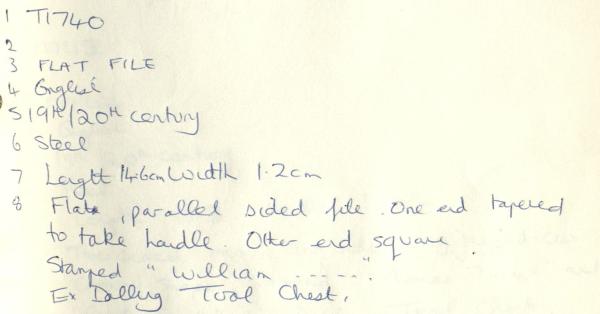 1 T1740
2
3 FLAT FILE
4 English
5 19th/20th century
6 Steel
7 Length 14.6cm Width 1.2cm
8 Flat, parallel sided file. One end tapered
to take handle. Other end square.
Stamped "William -----".
Ex Tool Chest.